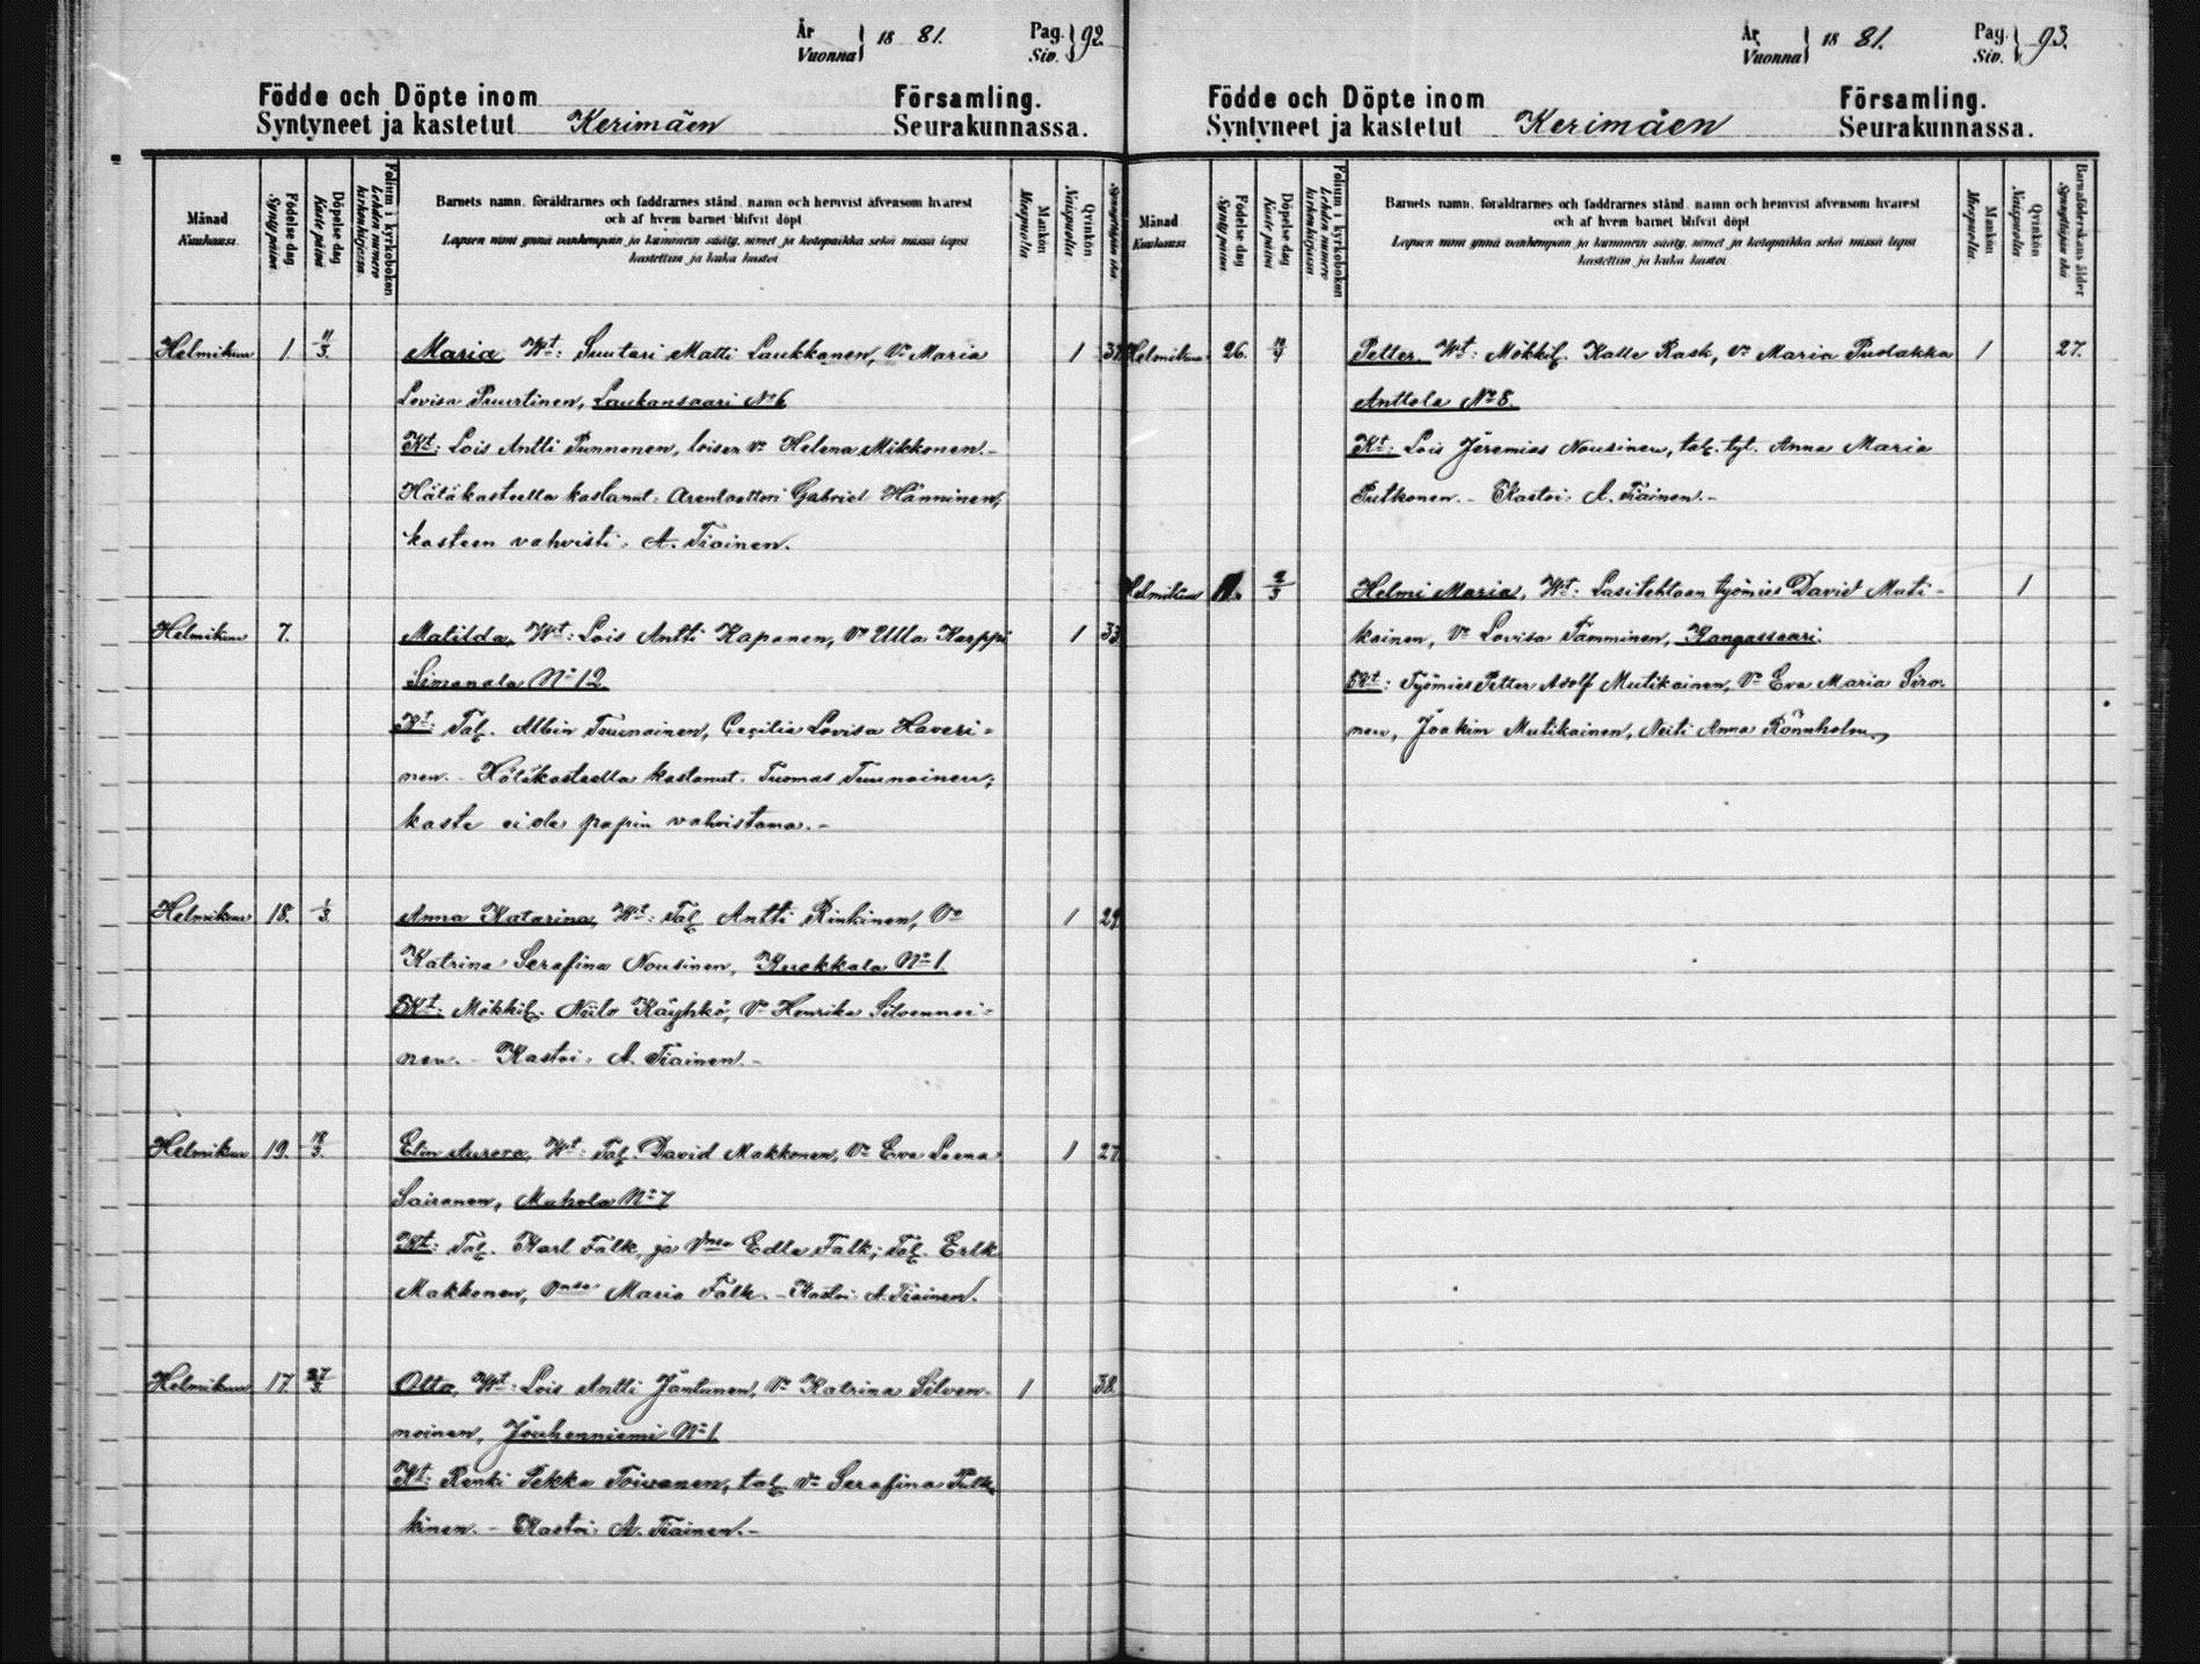 År
Vuonna } 18 81.
Pag.
Siv. } 92.
Födde och Döpte inom Församling.
Syntyneet ja kastetut Kerimäen Seurakunnassa.
Månad
Kuukausi.
Födelse dag
Synty päivä
Döpelse dag
Kaste päivä
Folium i kyrkoboken
Lehden numero
kirkonkirjassa.
Barnets namn, föräldrarnes och faddrarnes stånd, namn och hemvist äfvensom hvarest
och af hvem barnet blifvit döpt
Lapsen nimi ynnä vanhempain ja kummein sääty, nimet ja kotopaikka sekä missä lapsi
kastettiin ja kuka kastoi
Mankön
Miespuolta
Qvinkön
Naispuolta
Helmikuu 1 11/3. Maria, Wt: Suutari Matti Laukkanen, Vo Maria 1
Lovisa Puurtinen, Laukansaari No 6
Kt: Lois Antti Punnonen, loisen Vo Helena Mikkonen.-
Hätäkasteella kastanut: Arentaattori Gabriel Hänninen,
kasteen vahvisti: A. Tiainen.
Helmikuu 7. Matilda, Wt: Lois Antti Kaponen, Vo Ulla Karppi 1 33
Simanala No 12
Kt: Tal. Albin Tuunainen, Cecilia Lovisa Haveri-
nen.- Hätäkasteella kastanut. Tuomas Tuunainen;
kaste ei ole papin vahvistama.-
Helmikuu 18. 1/3. Anna Katarina, Wt: Tal. Antti Rinkinen, Vo 1 29
Katrina Serafina Nousinen, Kuokkala No 1.
Kt: Mökkil. Niilo Käyhkö, Vo Henrika Silvennoi-
nen.- Kastoi: A. Tiainen.-
Helmikuu 19. 18/3. Elin Aurora, Wt: Tal. David Makkonen, Vo Eva Leena 1 27
Sairanen, Muhola No 7
Kt: Tal. Karl Falk, ja Vmo Edla Falk; Tal. Erik
Makkonen, Maria Falk.- Kastoi: A. Tiainen.
Helmikuu 17. 27/3. Otto, Wt: Lois Antti Jäntunen, Vo Katrina Silven- 1 38.
noinen, Jouhenniemi No 1.
Kt: Renki Pekka Toivanen, tal. Vo Serafina Pulk-
kinen.- Kastoi: A. Tiainen.-
År
Vuonna } 18 81.
Pag.
Siv. } 93.
Födde och Döpte inom Församling.
Syntyneet ja kastetut Kerimäen Seurakunnassa.
Månad
Kuukausi
Födelse dag
Synty päivä
Döpelse dag
Kaste päivä
Folium i kyrkoboken
Lehden numero
kirkonkirjassa
Barnets namn, föräldrarnes och faddrarnes stånd, namn och hemvist äfvensom hvarest
och af hvem barnet blifvit döpt
Lapsen nimi ynnä vanhempain ja kummein sääty, nimet ja kotopaikka sekä missä lapsi
kastettiin ja kuka kastoi
Mankön
Miespuolta.
Qvinkön
Naispuolta
Barnaföderskans ålder
Synnyttäjän ikä.
Helmikuu 26. Petter, Wt: Mökkil. Kalle Rask, Vo Maria Pudakka 1 27.
Anttola No 8.
Kt: Lois Jeremias Nousinen, tal. tyt. Anna Maria
Putkonen.- Kastoi: A. Tiainen.-
Helmikuu Helmi Maria, Wt: Lasitehtaan työmies David Muti- 1
kainen, Vo Lovisa Tamminen, Kangassaari.
Kt: Työmies Petter Adolf Mutikainen, Vo Eva Maria Siro-
nen, Joakim Mutikainen, Neiti Anna Rönnholm.,